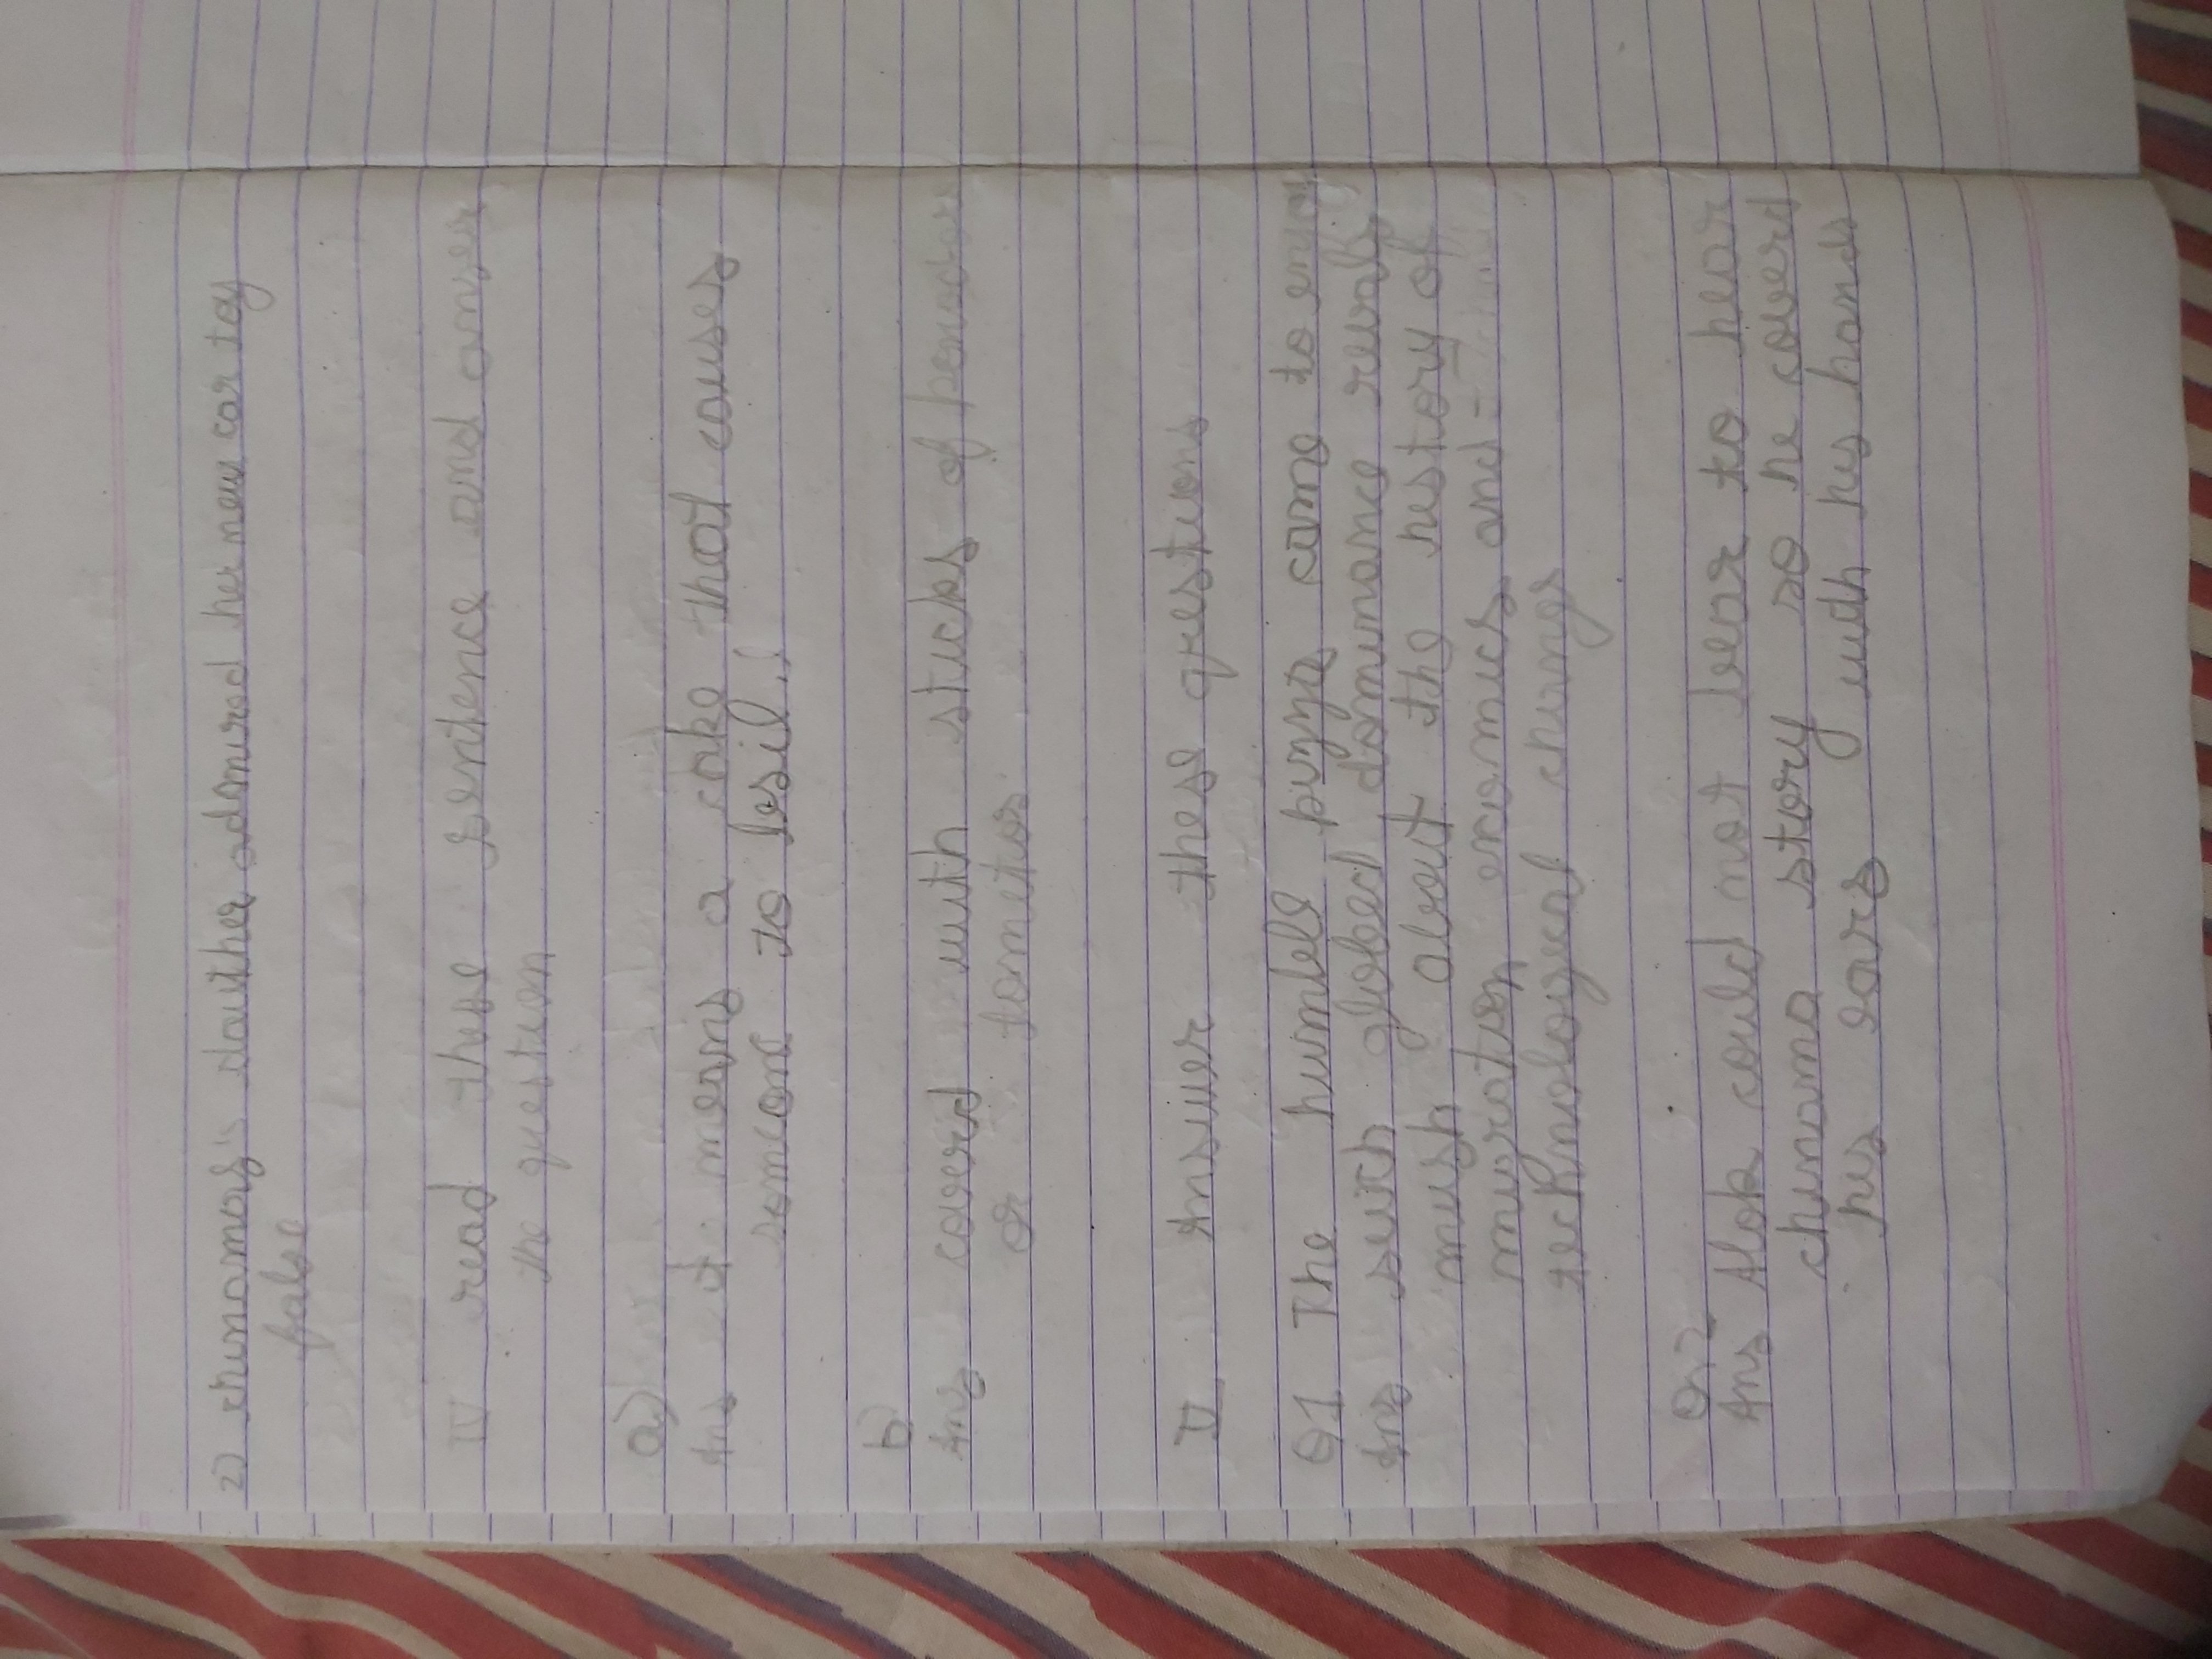 2) chinamas douther admired her new car toy
false
IV read these sentence and answer
the question
a)
Ans it means a cake that causes
someone to lesil..
b)
Ans coverd with sticks of
or tometos
V Answer these questions
Q1 The humble puzza came to enjoy
Ans such globed dominance revals
mush about the history of
muration enamics and =
technologycal chings
Q2
Ans Alok could not bear to hear
chinama story so he coverd
his ears with his hands